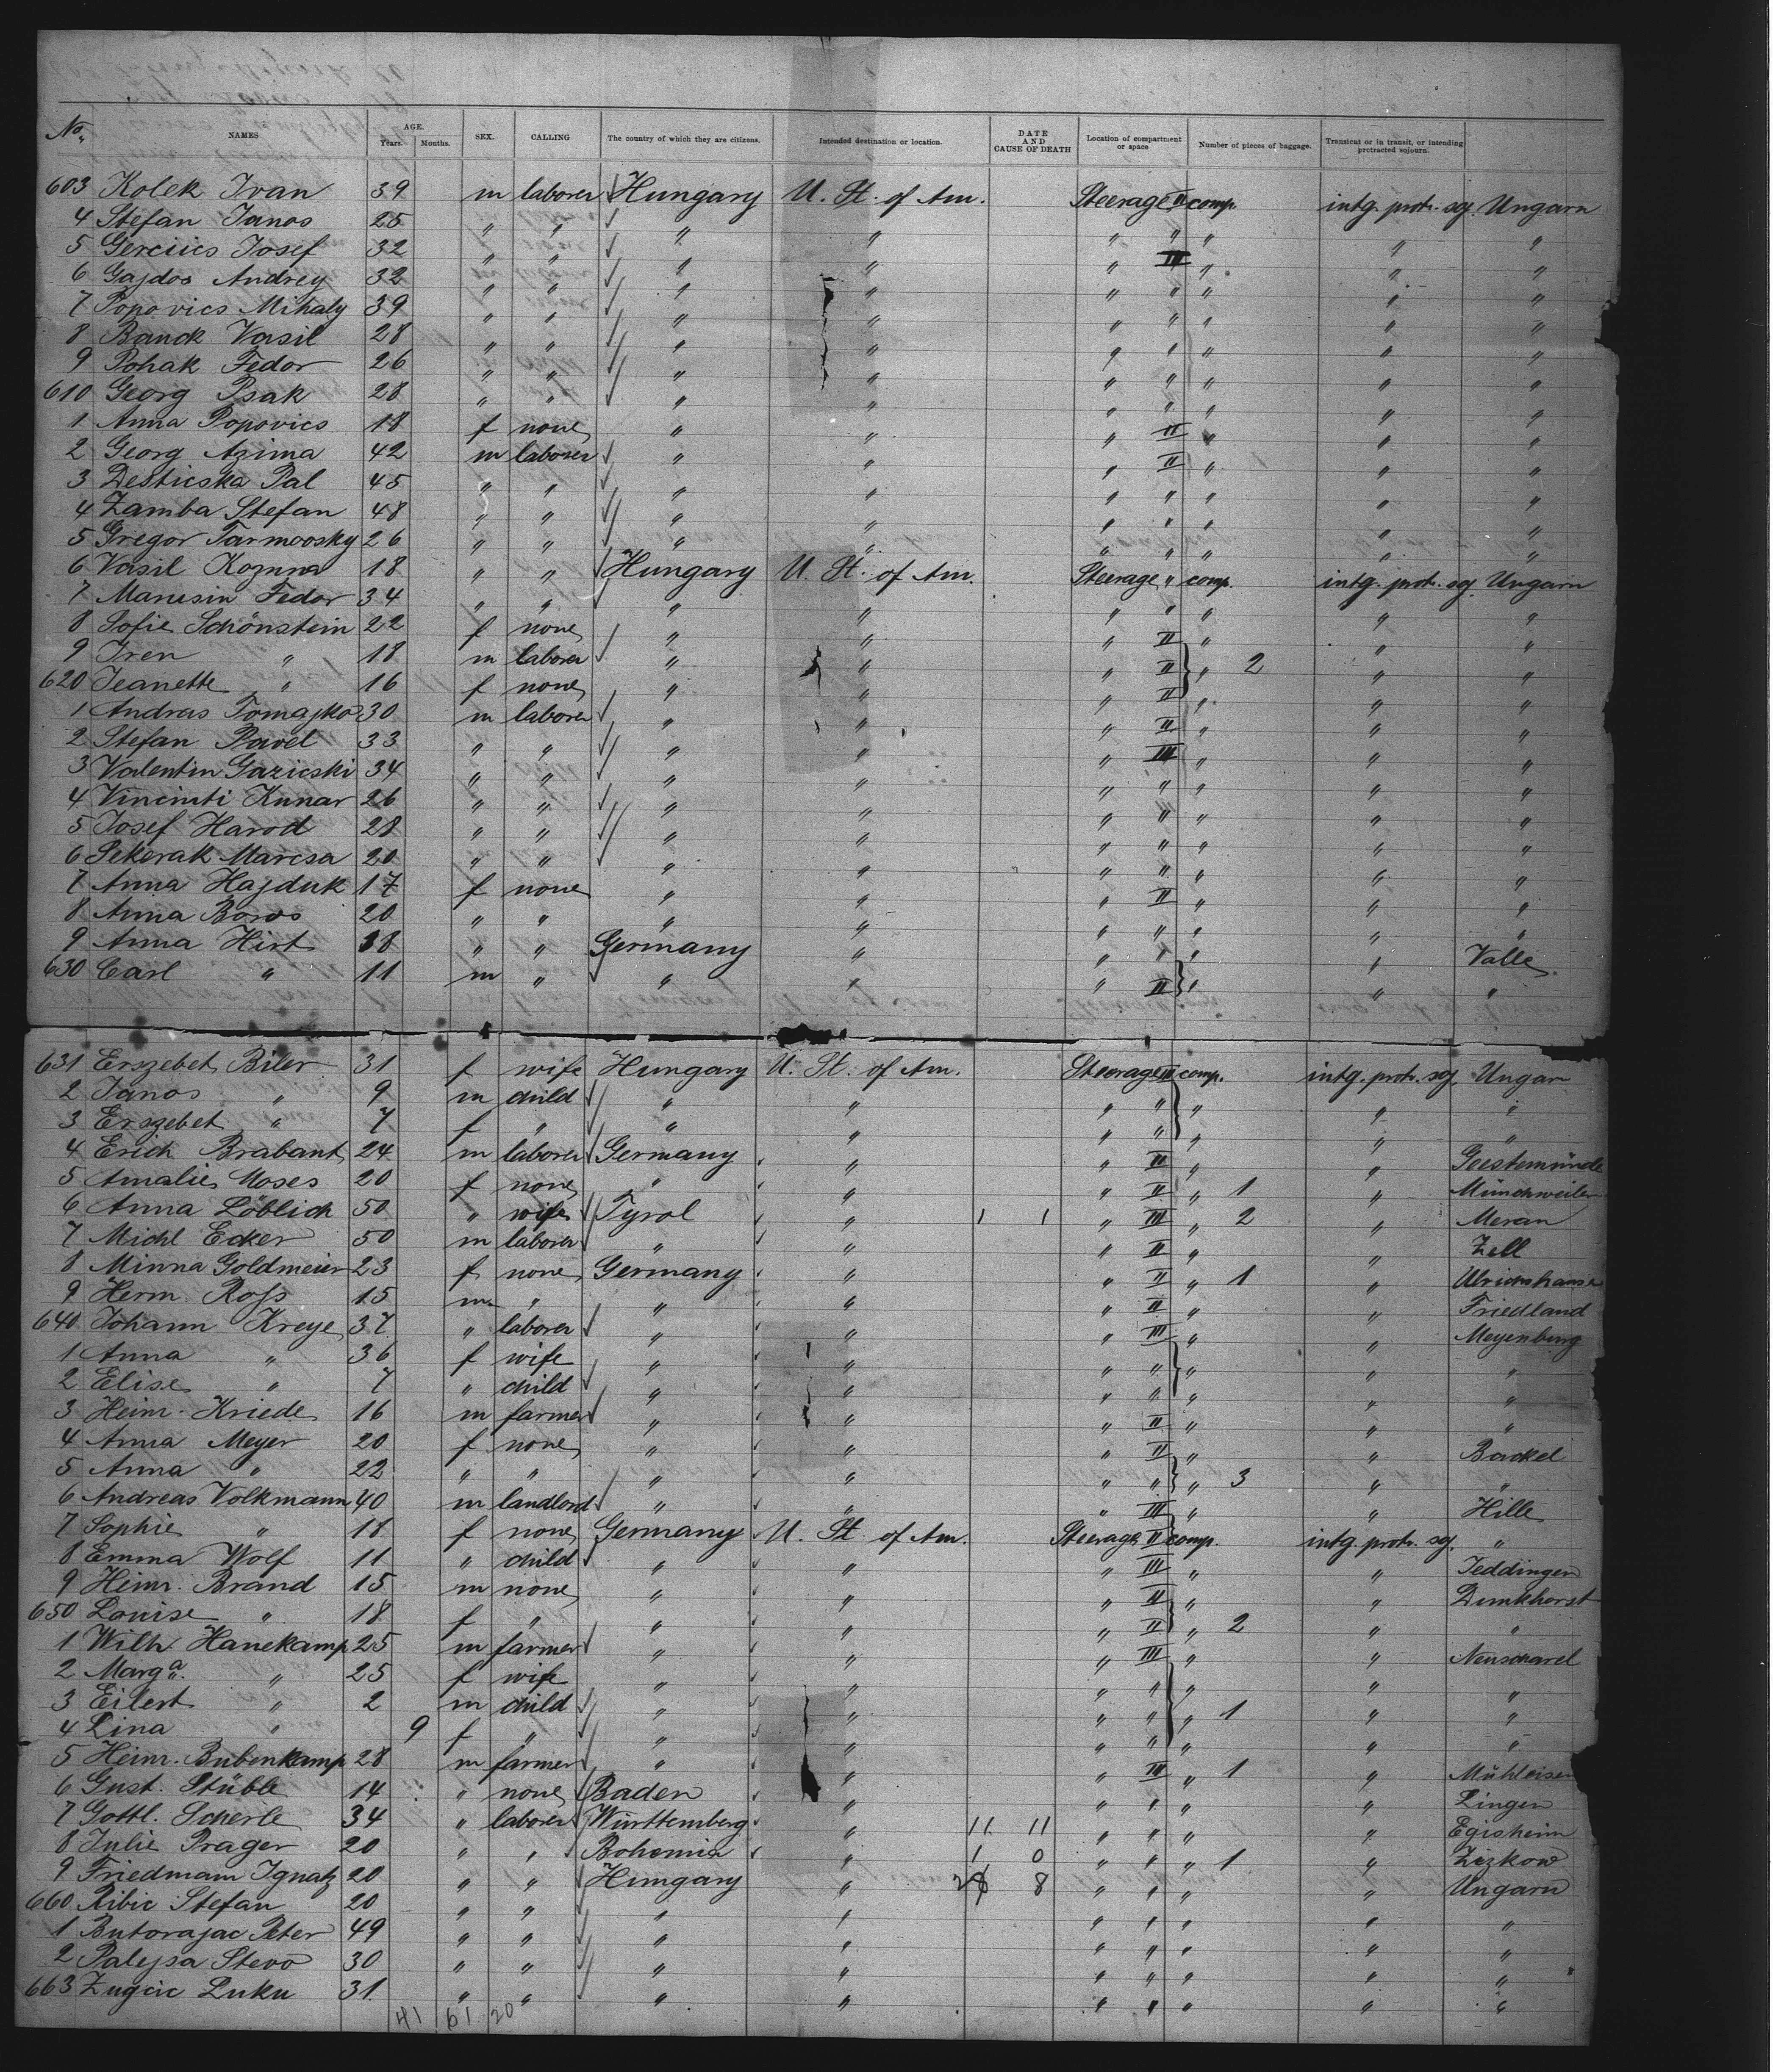 No. NAMES AGE. Years. Months. SEX. CALLING The country of which they are citizens. Intended destination or location. DATE AND CAUSE OF DEATH Location of compartment or space Number of pieces of baggage. Transient or in transit, or intending protracted sojourn.
603 Kolek Ivan 39 m laborer Hungary U. St. of Am. Steerage II comp. intg. protr. soj. Ungarn
4 Stefan Janos 25 " " " " " " " " "
5 Josef 32 " " " " " III " " "
6 Gajdos Andrey 32 " " " " " " " " "
7 Popovics Mihaly 39 " " " " " " " " "
8 Banck Vasil 28 " " " " " " " " "
9 Pohak Fedor 26 " " " " " " " " "
610 Georg Psak 28 " " " " " " " " "
1 Anna Popovics 18 f none " " " II " " "
2 Georg Azima 42 m laborer " " " II " " "
3 Desticska Pal 45 " " " " " " " " "
4 Zamba Stefan 48 " " " " " " " " "
5 Gregor Tarmoosky 26 " " " " " " " " "
6 Vasil Kozma 18 " " Hungary U. St. of Am. Steerage " comp. intg. protr. soj. Ungarn
7 Manesin Fedor 34 " " " " " " " " "
8 Sofie Schönstein 22 f none " " " II " " "
9 Iren " 18 m laborer " " " II " 2 " "
620 Jeanette " 16 f none " " " II " " "
1 Andras Tomajko 30 m laborer " " " II " " "
2 Stefan Pavel 33 " " " " " III " " "
3 Valentin Gazicski 34 " " " " " " " " "
4 Vincinti Kunar 26 " " " " " " " " "
5 Josef Harod 28 " " " " " " " " "
6 Sekerak Marcsa 20 " " " " " " " " "
7 Anna Hajduk 17 f none " " " II " " "
8 Anna Boros 20 " " " " " " " " "
9 Anna Hirt 38 " " Germany " " " " " Valle
630 Carl " 11 m " " " " II " " "
631 Erszebet Biler 31 f wife Hungary U. St. of Am. Steerage II comp. intg. protr. soj. Ungarn
2 Janos " 9 m child " " " " " " "
3 Erszebet " 7 f " " " " " " " "
4 Erich Brabant 24 m laborer Germany " " III " " Geestemünde
5 Amalie Moses 20 f none " " " II " 1 " Münchweiler
6 Anna Löblich 50 " wife Tyrol " 1 1 " III " 2 " Meran
7 Michl Ecker 50 m laborer " " " II " " Zell
8 Minna Goldmeier 23 f none Germany " " II " 1 " Ulrichshause
9 Herm. Ross 15 m " " " " II " " Friedland
640 Johann Kreye 37 " laborer " " " III " " Meyenburg
1 Anna " 36 f wife " " " " " " "
2 Elise " 7 " child " " " " " " "
3 Heinr. Kriede 16 m farmer " " " II " " "
4 Anna Meyer 20 f none " " " II " " Backel
5 Anna " 22 " " " " " " " 3 " "
6 Andreas Volkmann 40 m landlord " " " III " " Hille
7 Sophie " 18 f none Germany U. St. of Am. Steerage II comp. intg. protr. soj. "
8 Emma Wolf 11 " child " " " III " " Jeddingen
9 Heinr. Brand 15 m none " " " II " " Dunkhorst
650 Louise " 18 f " " " " II " 2 " "
1 Wilh. Hanekamp 25 m farmer " " " III " " Neuscharel
2 Marga. " 25 f wife " " " " " " "
3 Eilert " 2 m child " " " " " 1 " "
4 Lina " 9 f " " " " " " " "
5 Heinr. Bubenkamp 28 m farmer " " " III " 1 " Mühleisen
6 Gust. Stüble 14 " none Baden " " " " " Lingen
7 Gottl. Scherle 34 " laborer Württemberg " 11 11 " " " " Egisheim
8 Julie Prager 20 " " Bohemia " 1 0 " " " 1 " Zizkow
9 Friedmann Ignatz 20 " " Hungary " 8 " " " " Ungarn
660 Ribic Stefan 20 " " " " " " " " "
1 Butorajac Peter 49 " " " " " " " " "
2 Palejsa Stevo 30 " " " " " " " " "
663 Zugcic Luku 31 " " " " " " " " "
41 61 20